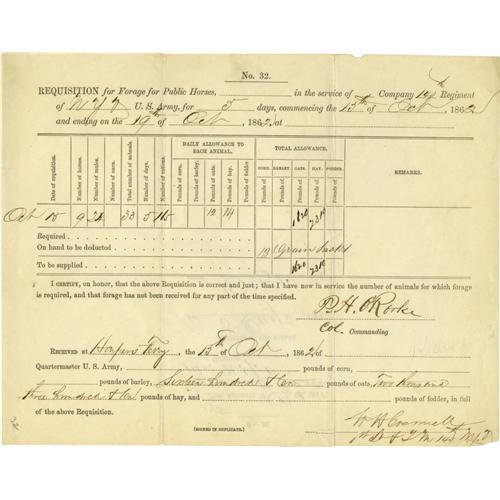 No. 32.
REQUISITION for Forage for Public Horses, in the service of Company 14th Regiment
of N.Y.V U. S. ARMY, for 5 days, commencing the 15th of Oct, 1862
and ending on the 19th of Oct, 1862, at
Date of requisition. Number of horses. Number of mules. Number of oxen. Total number of animals. Number of days. Number of rations. DAILY ALLOWANCE TO EACH ANIMAL. Pounds of corn. Pounds of barley. Pounds of oats. Pounds of hay. Pounds of fodder. TOTAL ALLOWANCE. CORN. BARLEY. OATS. HAY. FODDER. Pounds of Pounds of Pounds of Pounds of Pounds of REMARKS.
Oct 15 9 24 33 5 165 12 14 2310
Required
On hand to be deducted 19 Grain Sacks
To be supplied 2310
I CERTIFY, on honor, that the above Requisition is correct and just; that I have now in service the number of animals for which forage
is required, and that forage has not been received for any part of the time specified.
P. H. O'Rorke
Col. Commanding
RECEIVED at Harpers Ferry, the 15th of Oct, 1862, of
Quartermaster U. S. Army, pounds of corn,
pounds of barley, Sixteen hundred & ten pounds of oats, Two thousand
three hundred & ten pounds of hay, and pounds of fodder, in full
of the above Requisition.
(SIGNED IN DUPLICATE.)
32